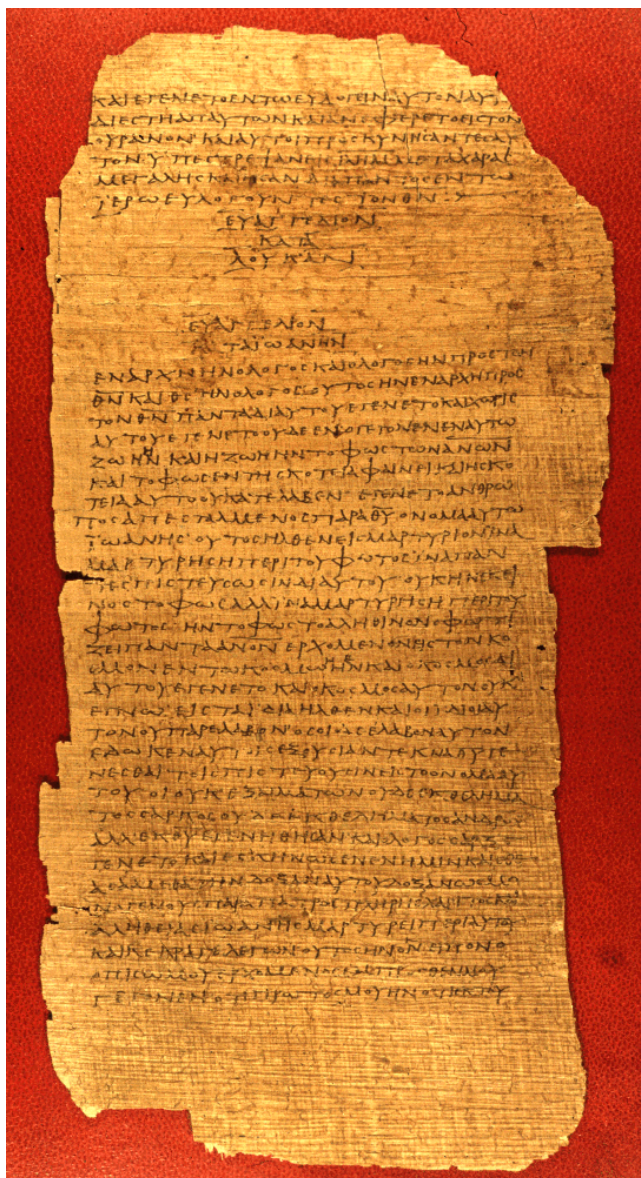 ΚΑΙΕΓΕΝΕΤΟΕΝΤΩΕΥΛΟΓΕΙΝΑΥΤΟΝΑΥ
ΔΙΕϹΤΗΑΠΑΥΤΩΝΚΑΙΑΝΕΦΕΡΕΤΟΕΙϹΤΟΝ
ΟΥΡΑΝΟΝΚΑΙΑΥΤΟΙΠΡΟϹΚΥΝΗϹΑΝΤΕϹΑΥ
ΤΟΝΥΠΕϹΤΡΕΨΑΝΕΙϹΙΗΛΗΜΜΕΤΑΧΑΡΑϹ
ΜΕΓΑΛΗϹΚΑΙΗϹΑΝΔΙΑΠΑΝΤΟϹΕΝΤΩ
ΪΕΡΩΕΥΛΟΓΟΥΝΤΕϹΤΟΝΘΝ
ΕΥΑΓΓΕΛΙΟΝ
ΚΑΤΑ
ΛΟΥΚΑΝ
ΕΥΑΓΓΕΛΙΟΝ
ΚΑΤΑΪΩΑΝΗΝ
ΕΝΑΡΧΗΗΝΟΛΟΓΟϹΚΑΙΟΛΟΓΟϹΗΝΠΡΟϹΤΟΝ
ΘΝΚΑΙΘϹΗΝΟΛΟΓΟϹΟΥΤΟϹΗΝΕΝΑΡΧΗΠΡΟϹ
ΤΟΝΘΝΠΑΝΤΑΔΙΑΥΤΟΥΕΓΕΝΕΤΟΚΑΙΧΩΡΙϹ
ΑΥΤΟΥΕΓΕΝΕΤΟΟΥΔΕΕΝΟΓΕΓΟΝΕΝΕΝΑΥΤΩ
ΖΩΗΝΚΑΙΗΖΩΗΗΝΤΟΦΩϹΤΩΝΑΝΩΝ
ΚΑΙΤΟΦΩϹΕΝΤΗϹΚΟΤΕΙΑΦΑΙΝΕΙΚΑΙΗϹΚΟ
ΤΕΙΑΑΥΤΟΟΥΚΑΤΕΛΑΒΕΝΕΓΕΝΕΤΟΑΝΘΡΩ
ΠΟϹΑΠΕϹΤΑΛΜΕΝΟϹΠΑΡΑΘΥΟΝΟΜΑΑΥΤΩ
ΪΩΑΝΗϹΟΥΤΟϹΗΛΘΕΝΕΙϹΜΑΡΤΥΡΙΟΝΙΝΑ
ΜΑΡΤΥΡΗϹΗΠΕΡΙΤΟΥΦΩΤΟϹΙΝΑΠΑΝ
ΤΕϹΠΙϹΤΕΥϹΩϹΙΝΔΙΑΥΤΟΥΟΥΚΗΝΕΚΕΙ
ΝΟϹΤΟΦΩϹΑΛΛΙΝΑΜΑΡΤΥΡΗϹΗΠΕΡΙΤΟΥ
ΦΩΤΟϹΗΝΤΟΦΩϹΤΟΑΛΗΘΙΝΟΝΟΦΩΤΙ
ΖΕΙΠΑΝΤΑΑΝΟΝΕΡΧΟΜΕΝΟΝΕΙϹΤΟΝΚΟ
ϹΜΟΝΕΝΤΩΚΟϹΜΩΗΝΚΑΙΟΚΟϹΜΟϹΔΙ
ΑΥΤΟΥΕΓΕΝΕΤΟΚΑΙΟΚΟϹΜΟϹΑΥΤΟΝΟΥΚ
ΕΓΝΩΕΙϹΤΑΪΔΙΑΗΛΘΕΝΚΑΙΟΙΙΔΙΟΙΑΥ
ΤΟΝΟΥΠΑΡΕΛΑΒΟΝΟϹΟΙΔΕΕΛΑΒΟΝΑΥΤΟΝ
ΕΔΩΚΕΝΑΥΤΟΙϹΕΞΟΥϹΙΑΝΤΕΚΝΑΘΥΓΕ
ΝΕϹΘΑΙΤΟΙϹΠΙϹΤΕΥΟΥϹΙΝΕΙϹΤΟΟΝΟΜΑΑΥ
ΤΟΥΟΙΟΥΚΕΞΑΙΜΑΤΩΝΟΥΔΕΕΚΘΕΛΗΜΑ
ΤΟϹϹΑΡΚΟϹΟΥΔΕΕΚΘΕΛΗΜΑΤΟϹΑΝΔΡΟϹ
ΑΛΛΕΚΘΥΕΓΕΝΗΘΗϹΑΝΚΑΙΟΛΟΓΟϹϹΑΡΞΕ
ΓΕΝΕΤΟΚΑΙΕϹΚΗΝΩϹΕΝΕΝΗΜΙΝΚΑΙΕΘΕ
ΑϹΑΜΕΘΑΤΗΝΔΟΞΑΝΑΥΤΟΥΔΟΞΑΝΩϹΜΟ
ΝΟΓΕΝΟΥϹΠΑΡΑΠΑΤΡΟϹΠΛΗΡΗϹΧΑΡΙΤΟϹΚΑΙ
ΑΛΗΘΕΙΑϹΪΩΑΝΗϹΜΑΡΤΥΡΕΙΠΕΡΙΑΥΤΟΥ
ΚΑΙΚΕΚΡΑΓΕΛΕΓΩΝΟΥΤΟϹΗΝΟΝΕΙΠΟΝΟ
ΟΠΙϹΩΜΟΥΕΡΧΟΜΕΝΟϹΕΜΠΡΟϹΘΕΝΜΟΥ
ΓΕΓΟΝΕΝΟΤΙΠΡΩΤΟϹΜΟΥΗΝΟΤΙΕΚΤΟΥ